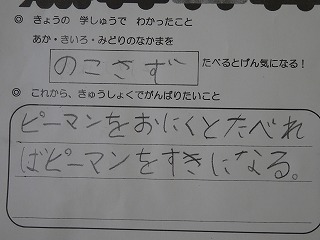 ◎ きょうの 学しゅうで わかったこと
あか・きいろ・みどりのなかまを
のこさず たべるとげん気になる！
◎ これから、きゅうしょくでがんばりたいこと
ピーマンをおにくとたべれ
ばピーマンをすきになる。